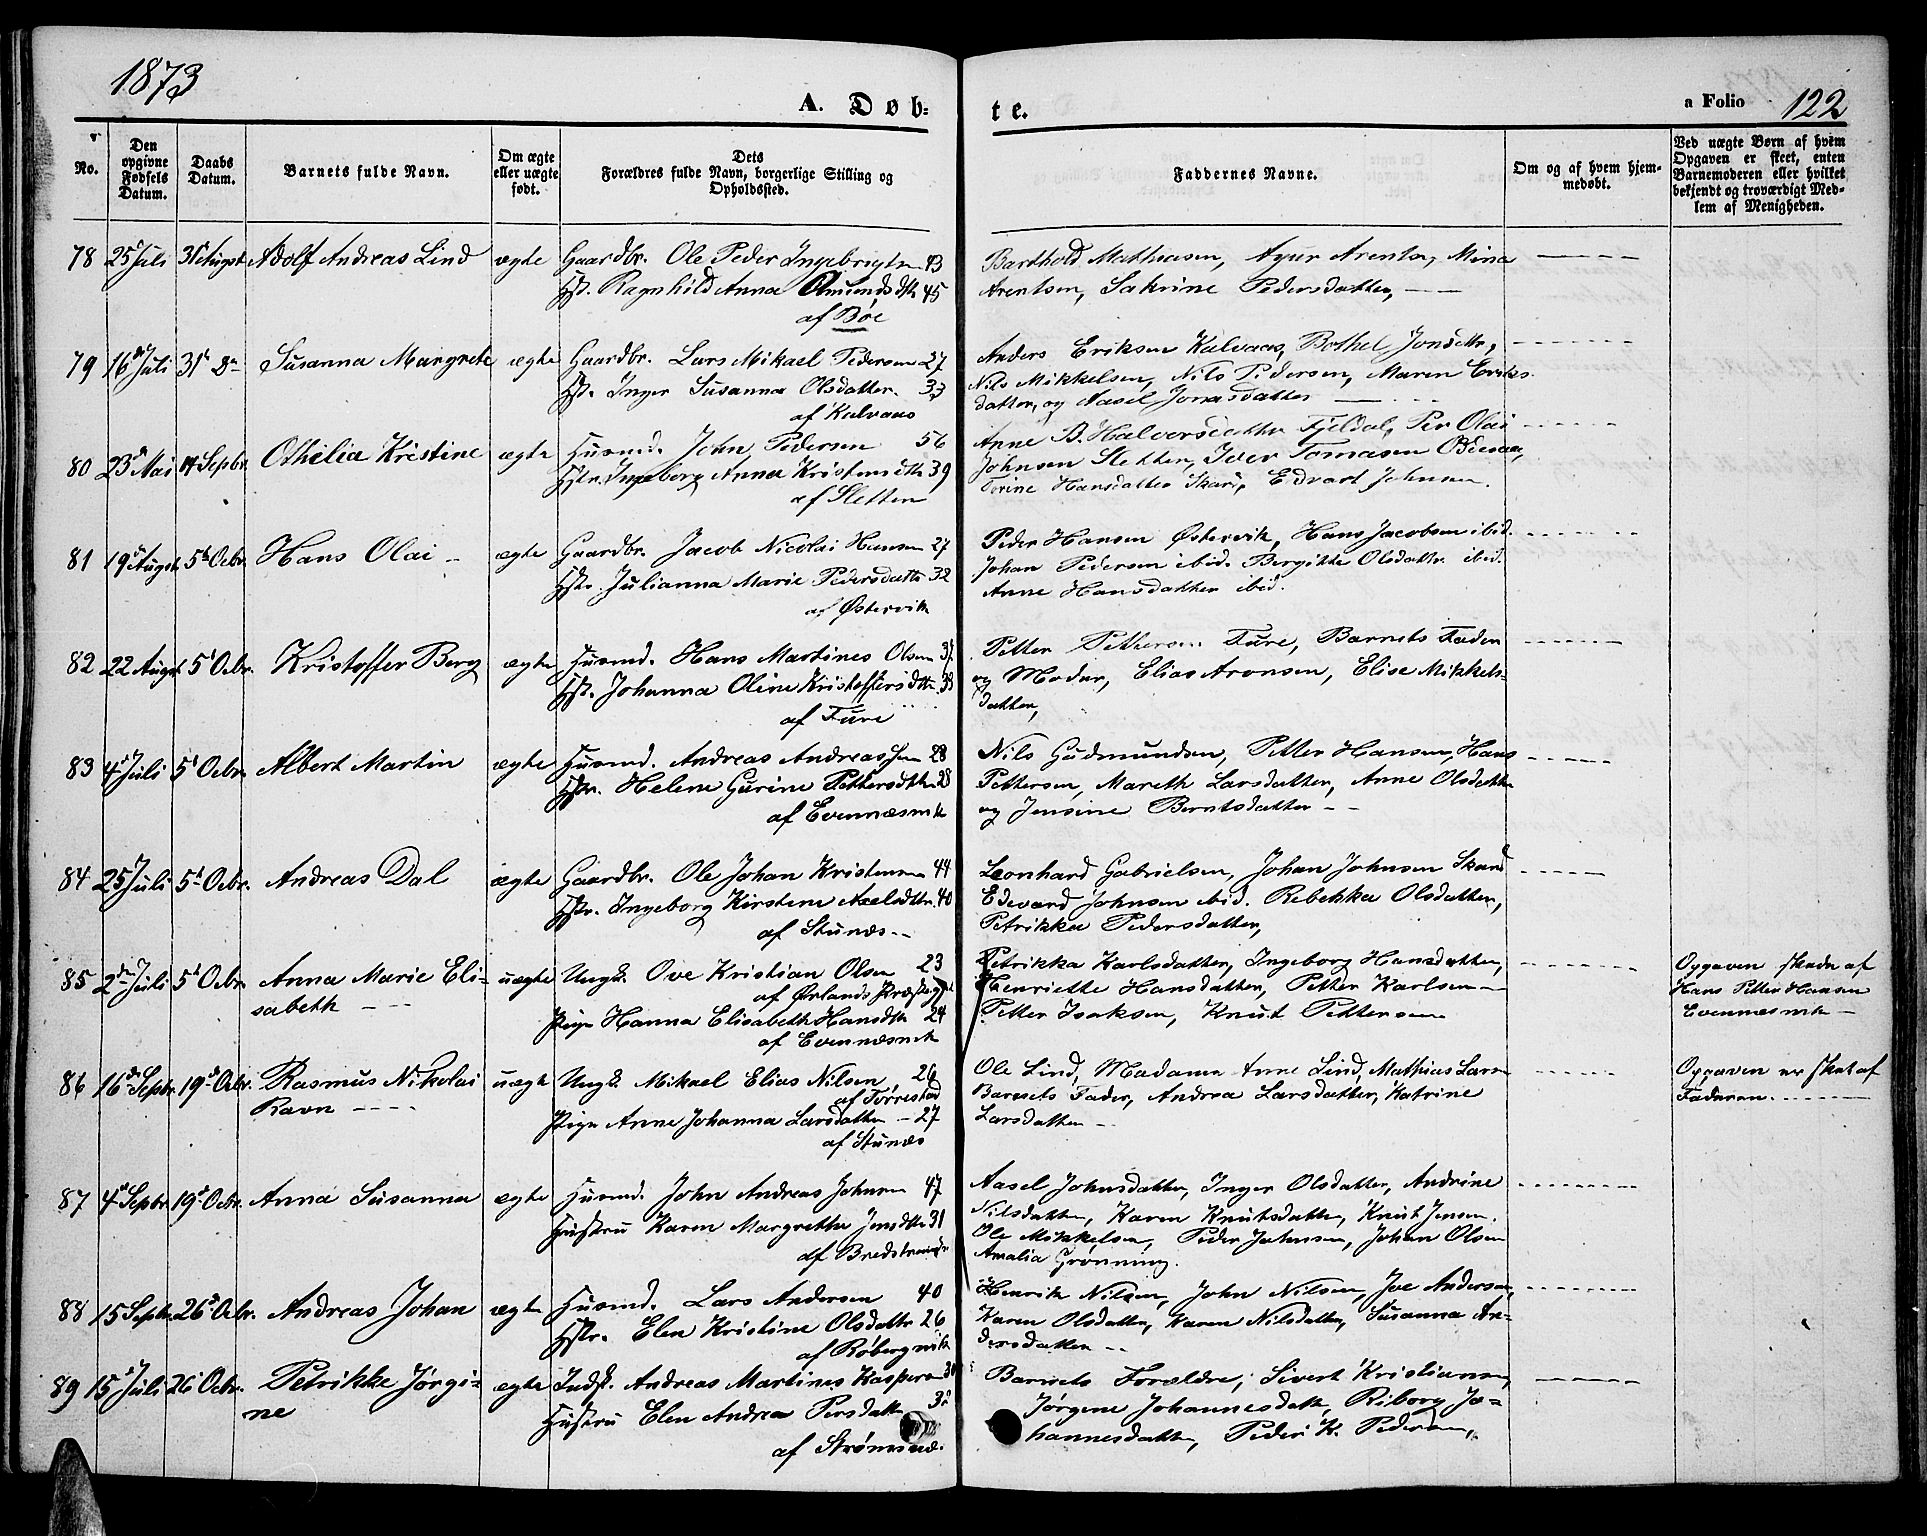 1873
A. Døb-
te.
a Folio 122
No.
Den opgivne Fødsels Datum.
Daabs Datum.
Barnets fulde Navn.
Om ægte eller uægte født.
Dets Forældres fulde Navn, borgerlige Stilling og Opholdssted.
Faddernes Navne.
Om og af hvem hjemmedøbt.
Ved uægte Børn af hvem Opgaven er skeet, enten Barnemoderen eller hvilket bekjendt og troværdigt Medlem af Menigheden.
78 25 Juli 31 Augst Adolf Andreas Lind ægte Gaardbr. Ole Peder Ingebrigtsn 43
Hst. Ragnhild Anna Amundsdtr 45
af Boe
Barthold Mathiasen, Arentsn, Mina
Arentsen, Sakrine Pedersdatter,
79 16 Juli 31 Do Susanna Margrete ægte Gaardbr. Lars Mikael Pedersen 37
Hst. Inger Susanna Olsdatter. 33
af Kulvaas
Anders Eriksen Kulvaas, Bothel Jonsdtr,
Nils Mikkelsen, Nils Pedersen, Maren Eriks-
datter, og Aasel Jonasdatter
80 23 Mai 14 Sepbr. Othilia Kristine ægte Husmd. John Pedersen 56
Hstr. Ingeborg Anna Kristensdtr 39
af Sletten
Anne B. Halvorsdatter Fjeldal, Per Olai
Johnsen Sletten, Iver Tomasen
Hansdatter Skar, Edvart Johnsen.
81 19 Augst. 5 Octbr. Hans Olai ægte Gaardbr. Jacob Nicolai Hansen 27
Hstr. Julianna Marie Pedersdatter 32
af Østervik
Peder Hansen Østervik, Hans Jacobsen ibid.
Johan Pedersen ibid. Bergitte Olsdatr. ibid.
Anne Hansdatter ibid.
82 22 Augst 5 Octbr. Kristoffer Berg ægte Husmd. Hans Martines Olsen
Hst. Johanna Oline Kristoffersdtr. 33
af Fure
Petter Pettersen Fure, Barnets Fader
og Moder, Elias Aronsen, Elise Mikkels-
datter,
83 4 Juli 5 Octbr. Albert Martin ægte Husmd. Andreas Andreassen 28
Hstr. Helene Gurine Pettersdtr 28
af Evennæsmk
Nils Gudmundsen, Petter Hansen, Hans
Pettersen, Mareth Larsdatter, Anne Olsdatter
og Jensine Berntsdatter
84 25 Juli 5 Octbr. Andreas Dal ægte Gaardbr. Ole Johan Kristensen 44
Hstr. Ingeborg Kirstine Axelsdtr. 40
af Stunæs
Leonhard Gabrielsen, Johan Johnsen Skard
Edevard Johnsen ibid. Rebekka Olsdatter,
Petrikka Pedersdatter,
85 2 Juli 5 Octbr. Anna Marie Eli-
sabeth
uægte Ungk. Ove Kristian Olsen 23
af Ørlands Præstegjæld
Pige Hanna Elisabeth Hansdtr 24
af Evennæsmk
Petrikka Karlsdatter, Ingeborg Hansdatter,
Henriette Hansdatter, Petter Karlsen
Petter Isaksen, Knut Pettersen
Opgaven skedn af
Hans Petter Hansen
Evennæsmk
86 16 Sepbr. 19 Octbr. Rasmus Nikolai
Ravn
uægte Ungk. Mikael Elias Nilsen, 26
af Torrestad
Pige Anne Johanna Larsdatter 27
af Stunæs
Ole Lind, Madame Anne Lind, Mathias Larsn
Barnets Fader, Andrea Larsdatter, Katrine
Larsdatter
Opgaven er skeet af
Faderen.
87 4 Sepbr. 19 Octbr. Anna Susanna ægte Husmd. John Andreas Johnsen 47
Hustru Karen Margrethe Jensdtr 31
af
Aasel Johnsdatter, Inger Olsdatter, Andrine
Nilsdatter, Karen Knutsdatter, Knut Jensen.
Ole Mikkelsen, Peder Johnsen, Johan Olsen
Amalia Grønning.
88 15 Septr. 26 Octbr. Andreas Johan ægte Husmd. Lars Andersen 40
Hstr. Elen Kristine Olsdattr 26
af Røbergmk
Henrik Nilsen, John Nilsen, Joe Andersen,
Karen Olsdatter, Karen Nilsdatter, Susanna An-
dersdatter
89 15 Juli 26 Octbr. Petrikke Jørgi-
ne
ægte Indst. Andreas Martines Kaspersn
Hustru Elen Andrea Persdatter
af Strømsnæ.
Barnets Forældre, Sivert Kristiansen,
Jørgine Johannesdatter, Riborg Jo-
hannesdatter, Peder K. Pedersen,